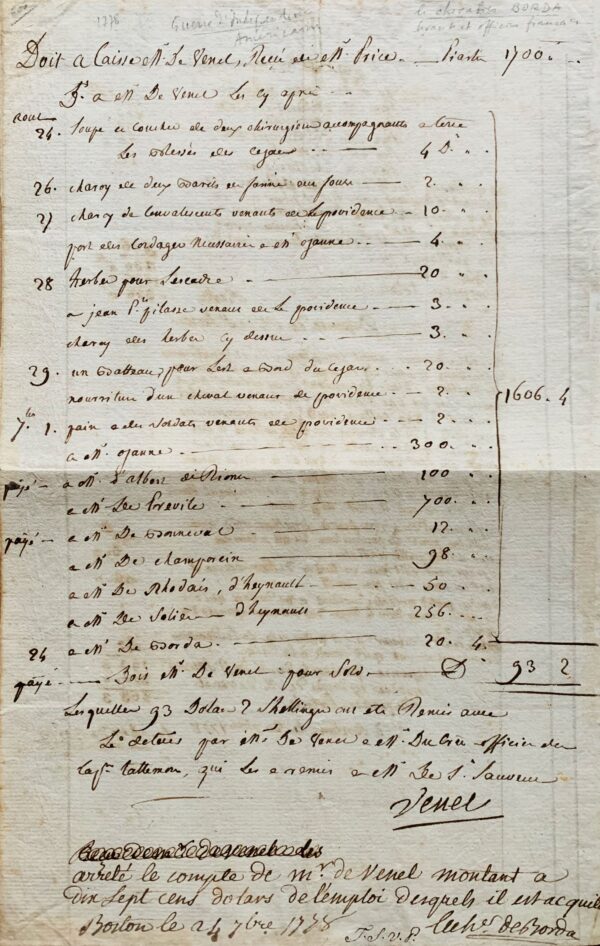 1778 Guerre d'Indépendance Américaine le chevalier BORDA savant et officier français
Doit a Caisse Mr. De Venel, Reçu de Mr. Price. Piastre 1700.
Pr. a Mr. De Venel Les cy après
aout
24. Soupé et couchée de deux chirurgien accompagnants a terre
Les Blessés du Cezar 4 D.
26. charoy de deux barils de farine au four 2
27 charoy de Convalescents venants de Le providence 10
port des Cordages Nessaires a Mr. ojanne 4
28 herbes pour Lescadre 20
a jean pilasse venans de Le providence 3
charoy des herbes cy dessus 3
29. un Batteau pour Lest a Bord du Cezar 20
nourriture d'un cheval venans de providence 2
7bre 1. pain a des soldats venants de providence 2
1606. 4
a Mr. ojanne 300
payé a Mr. d'albert de Rions 100
a Mr. De Preville 700
payé a Mr. De Bonneval 12
a Mr. De champorcin 98
a Mr. De Rhodais, d'heynault 50
a Mr. De Solier d'heynault 256
24 a Mr. De Borda 20 4
payé Dois Mr. De Venel pour Solde D 93 2
Lesquelles 93 Dolar 2 Shellings ont eté Remis avec
Le detail par Mr. De Venel a Mr. Du officier du
Capn. tallemon, qui Les a remis a Mr. De St. Sauveur
Venel
arreté le compte de mr. de Venel montant a
dix Sept cens dolars de l'emploi desquels il est acquitté
Boston le 24 7bre 1778 T.S.V.P. Le chr. de Borda